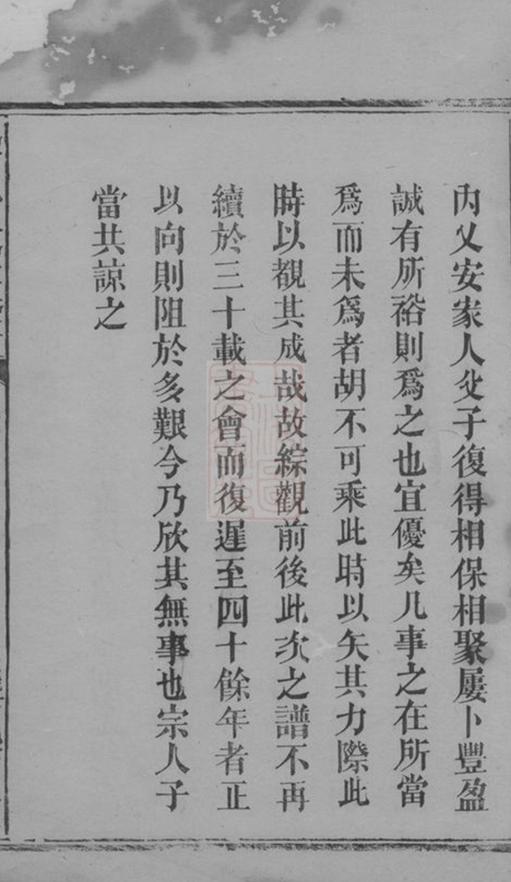 內乂安家人父子復得相保相聚屢卜豐盈
誠有所裕則爲之也宜優矣凡事之在所當
爲而未爲者胡不可乘此時以矢其力際此
時以觀其成哉故綜觀前後此次之譜不再
續於三十載之會而復遲至四十餘年者正
以向則阻於多艱今乃欣其無事也宗人子
當共諒之